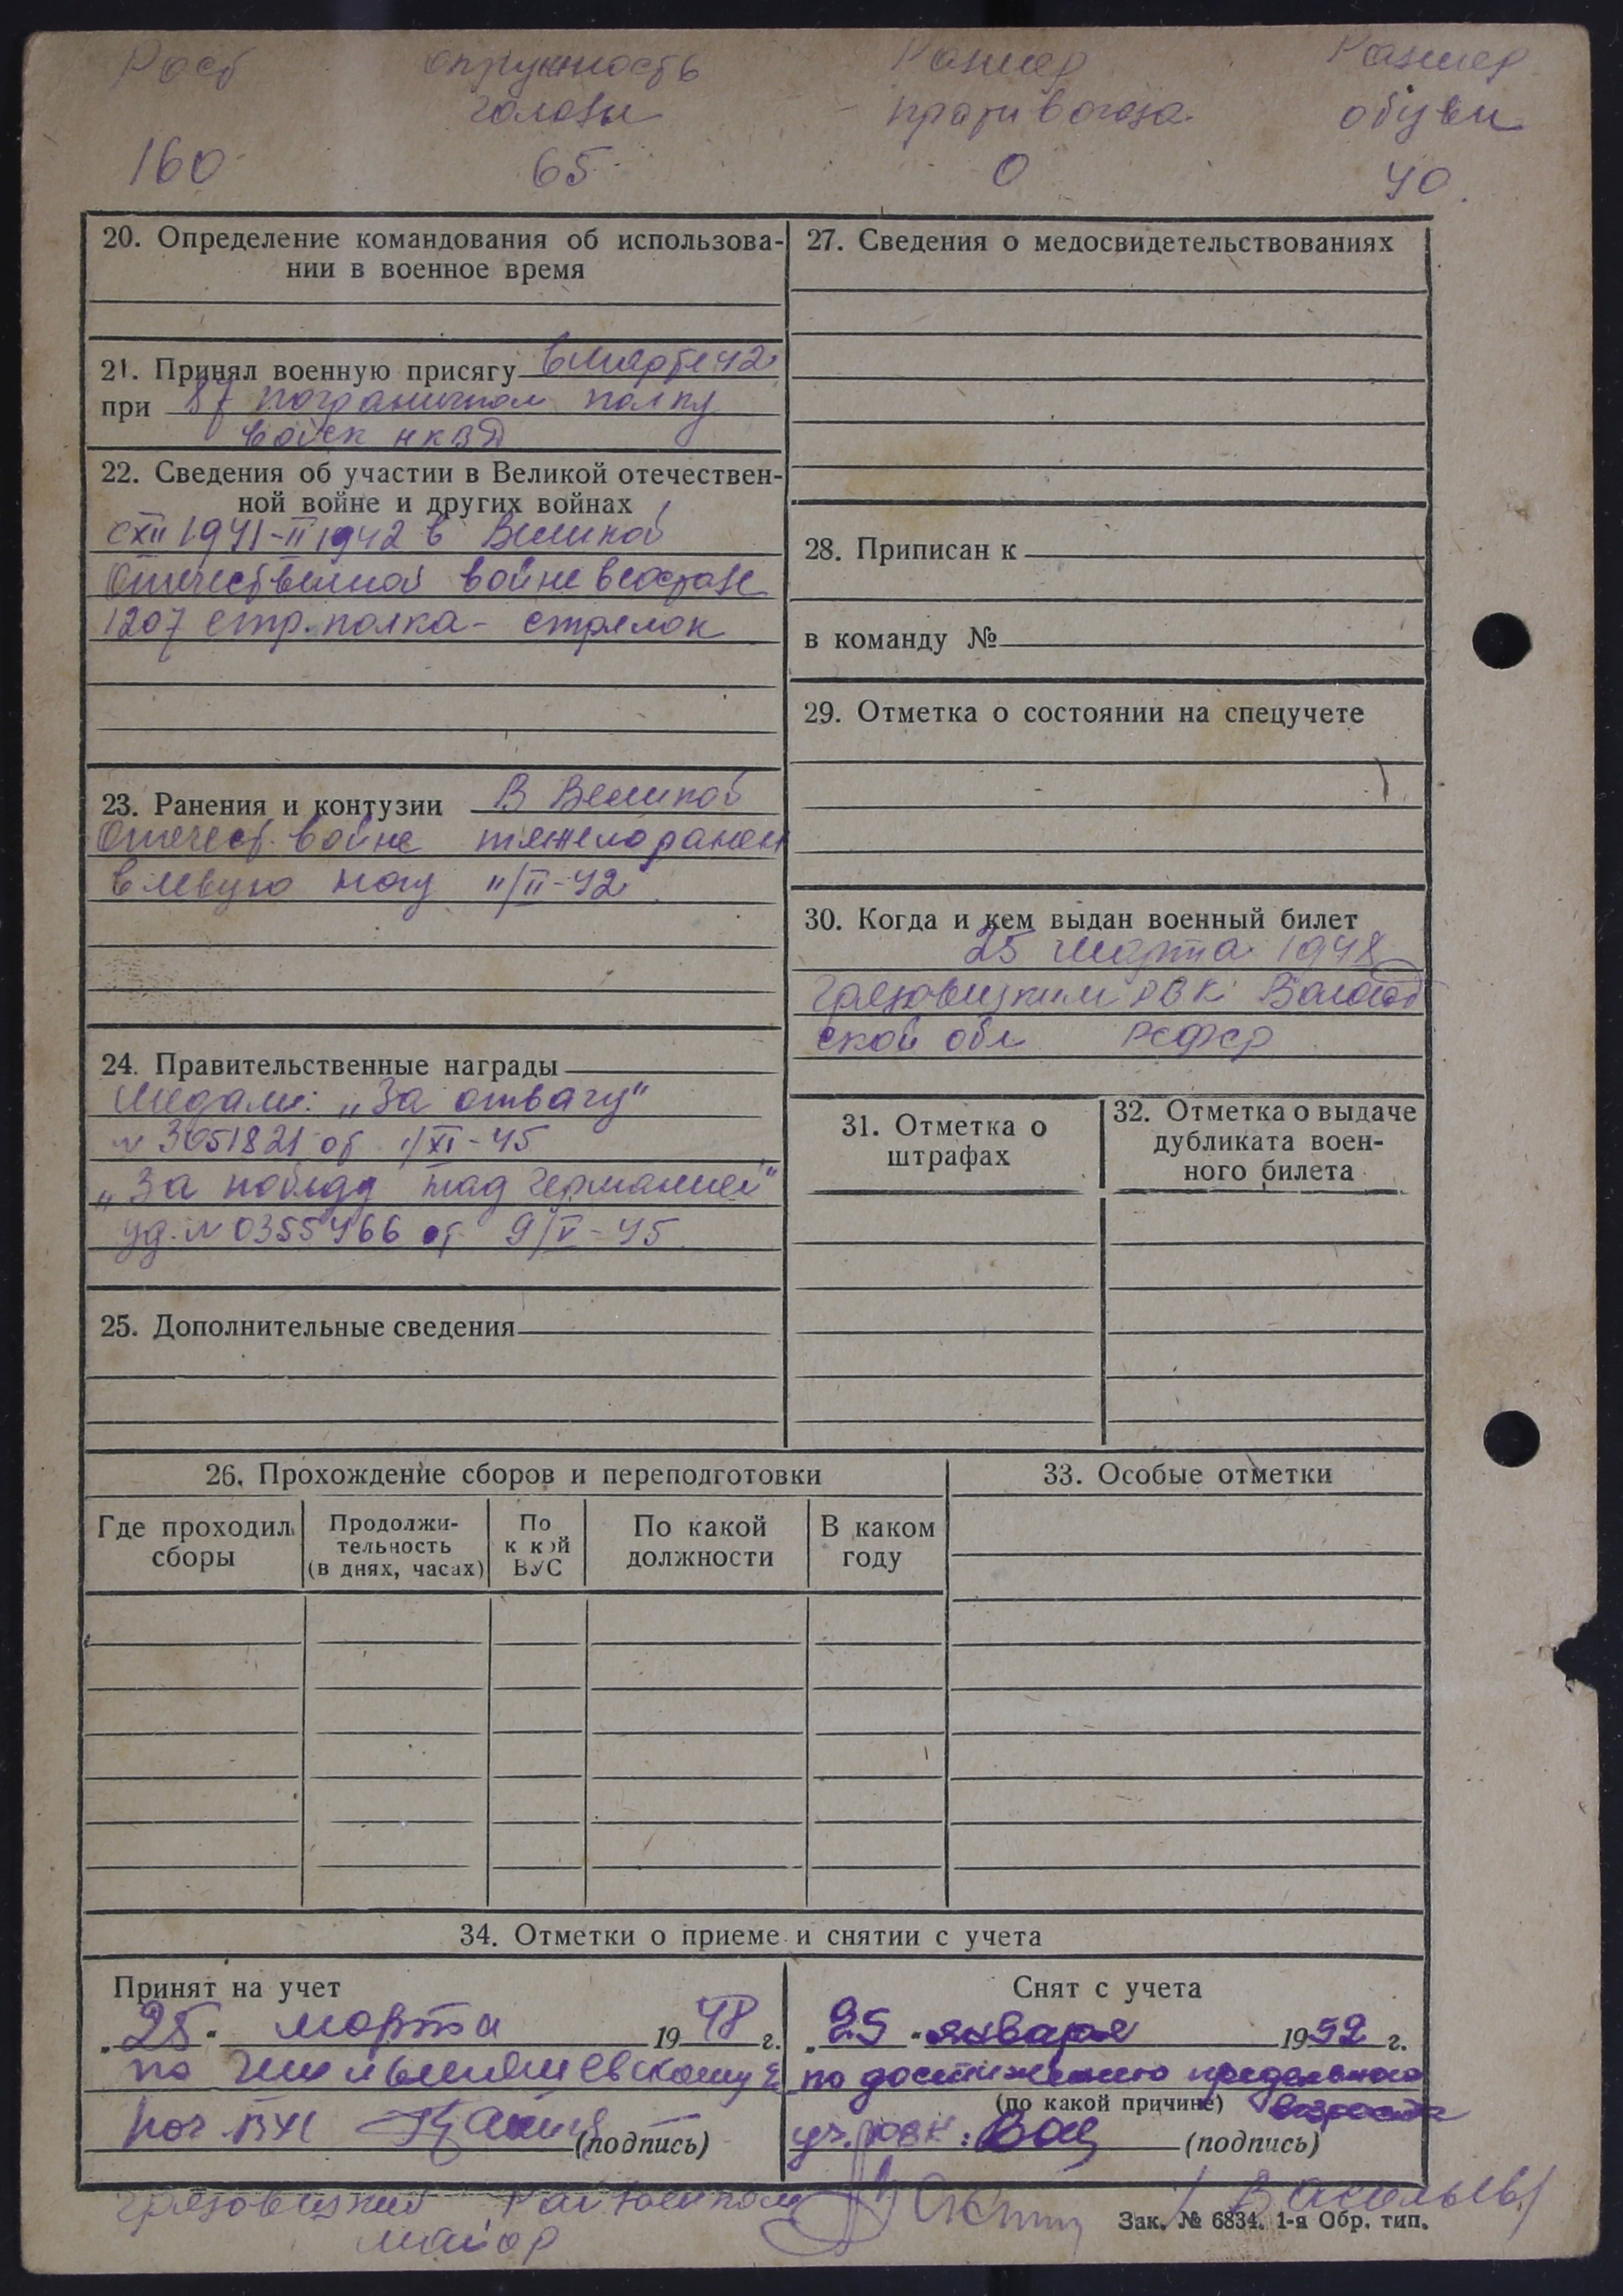 Рост окружность Размер Размер
головы противогаза обуви
160 65 0 40.
20. Определение командования об использова-
нии в военное время
21. Принял военную присягу в марте 42
при 87 пограничном полку
войск НКВД
22. Сведения об участии в Великой отечествен-
ной войне и других войнах
с XII 1941-II 1942 в Великой
Отечественной войне в составе
1207 стр. полка - стрелок
23. Ранения и контузии В Великой
Отечест. войне тяжело ранен
в левую ногу 11/II-42.
24. Правительственные награды
Медали: „За отвагу"
№ 3051821 от 1/XI-45
„За победу над Германией"
уд. № 0355466 от 9/V-45.
25. Дополнительные сведения
27. Сведения о медосвидетельствованиях
28. Приписан к
в команду №
29. Отметка о состоянии на спецучете
30. Когда и кем выдан военный билет
25 марта 1948
Грязовецким РВК Вологод
ской обл РСФСР
31. Отметка о
штрафах
32. Отметка о выдаче
дубликата воен-
ного билета
26. Прохождение сборов и переподготовки
Где проходил
сборы
Продолжи-
тельность
(в днях, часах)
По
к кой
ВУС
По какой
должности
В каком
году
33. Особые отметки
34. Отметки о приеме и снятии с учета
Принят на учет
„25" марта 1948 г.
по
Нач. ВУС
(подпись)
Снят с учета
„25" января 1952 г.
по достижению предельного
(по какой причине) возраста
(подпись)
Грязовецкий Райвоенком
майор
/Васильев/
Зак. № 6834. 1-я Обр. тип.